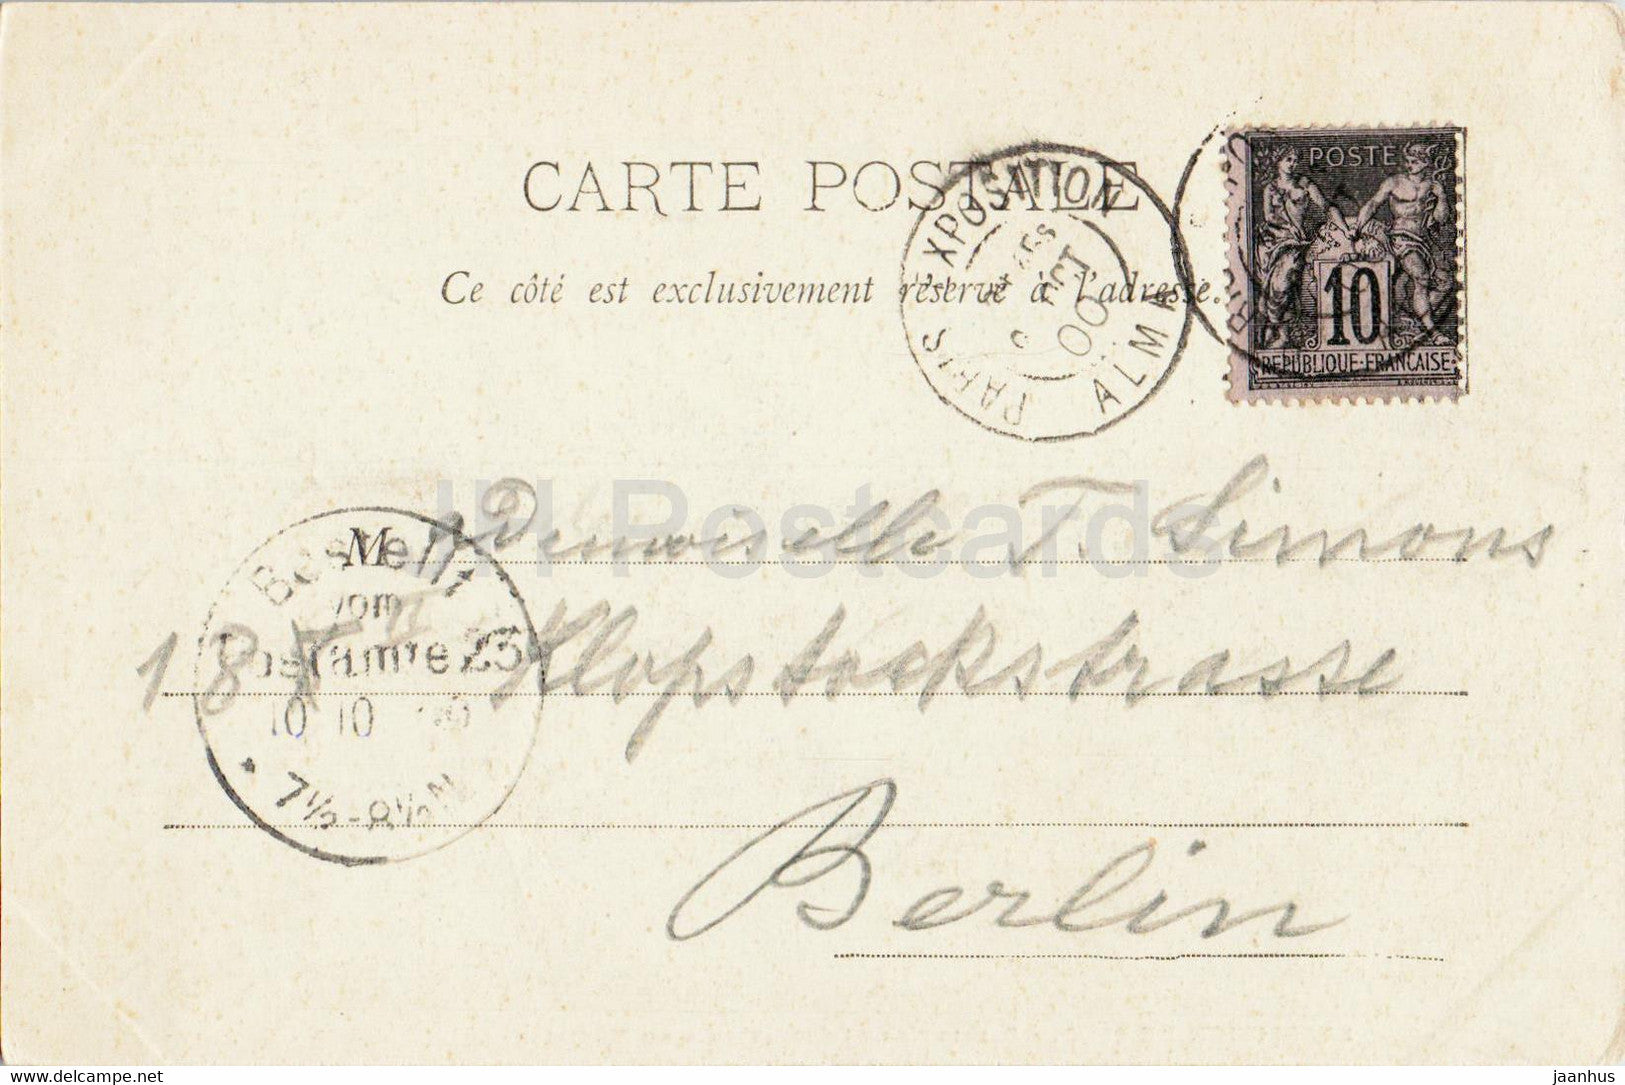 CARTE POSTALE
Ce côté est exclusivement réservé à l'adresse.
PARIS EXPOSITION
OCT
00
ALMA
POSTE
10
REPUBLIQUE·FRANÇAISE
Mademoiselle T. Simons
18 Klopstockstrasse
Berlin
Bestellt
vom
Postamte 23
10 10
7½-8½N
HI Postcards
https://www.delcampe.net
jaanhus